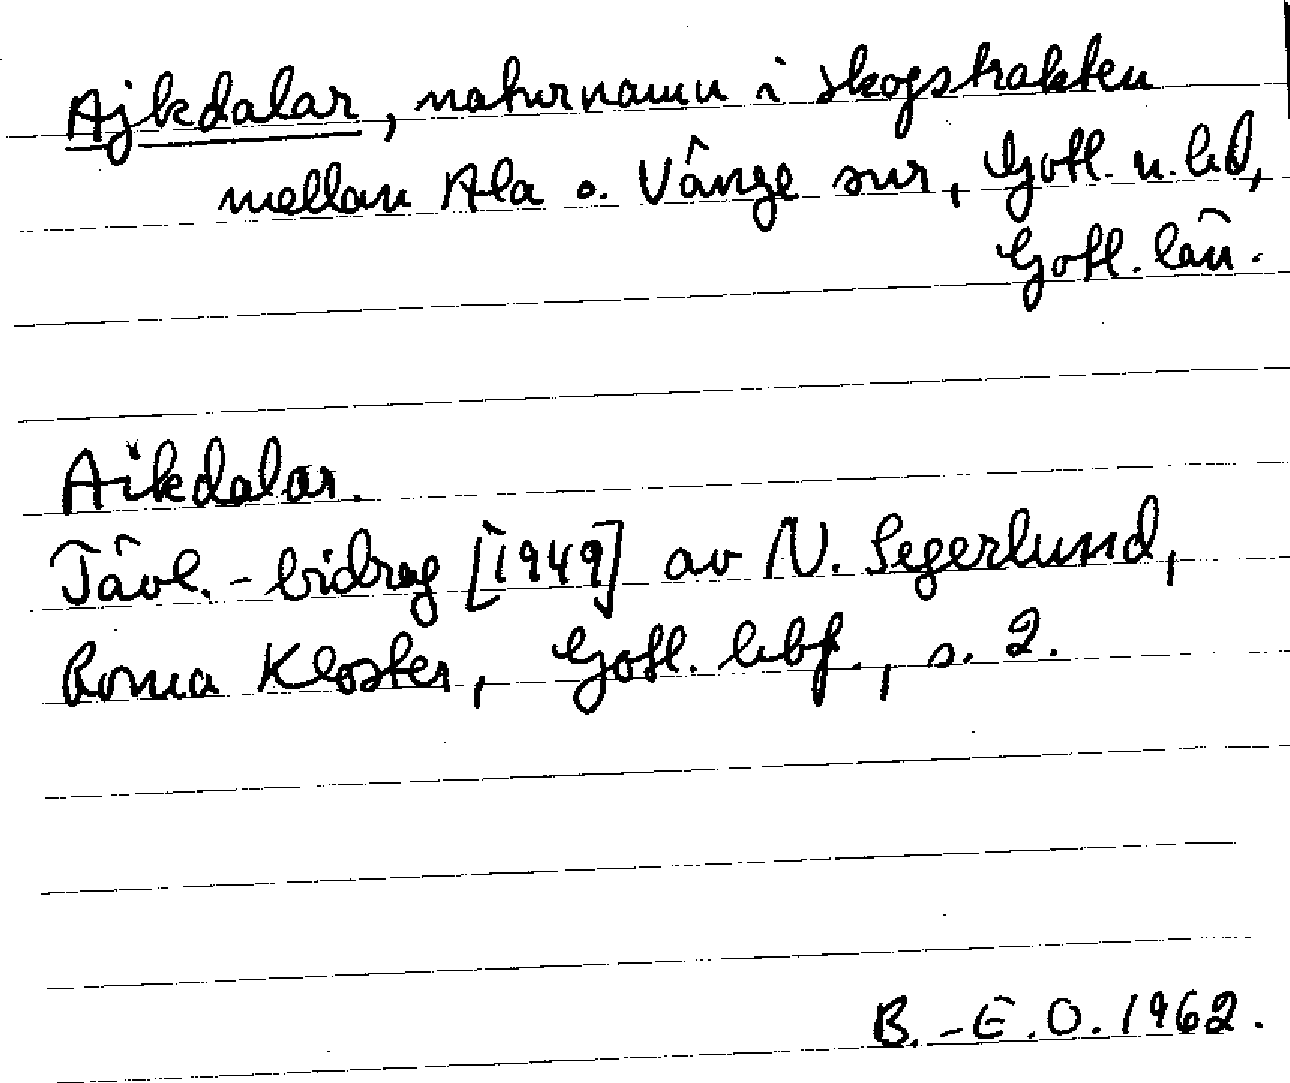 Ajkdalar, naturnamn i skogstrakten
mellan Ala o. Vänge snr, Gotl. n. hd,
Gotl. län.
Aikdalar.
Tävl.-bidrag [1949] av N. Segerlund,
Roma Kloster, Gotl. hbf., s. 2.
B.-E.O. 1962.